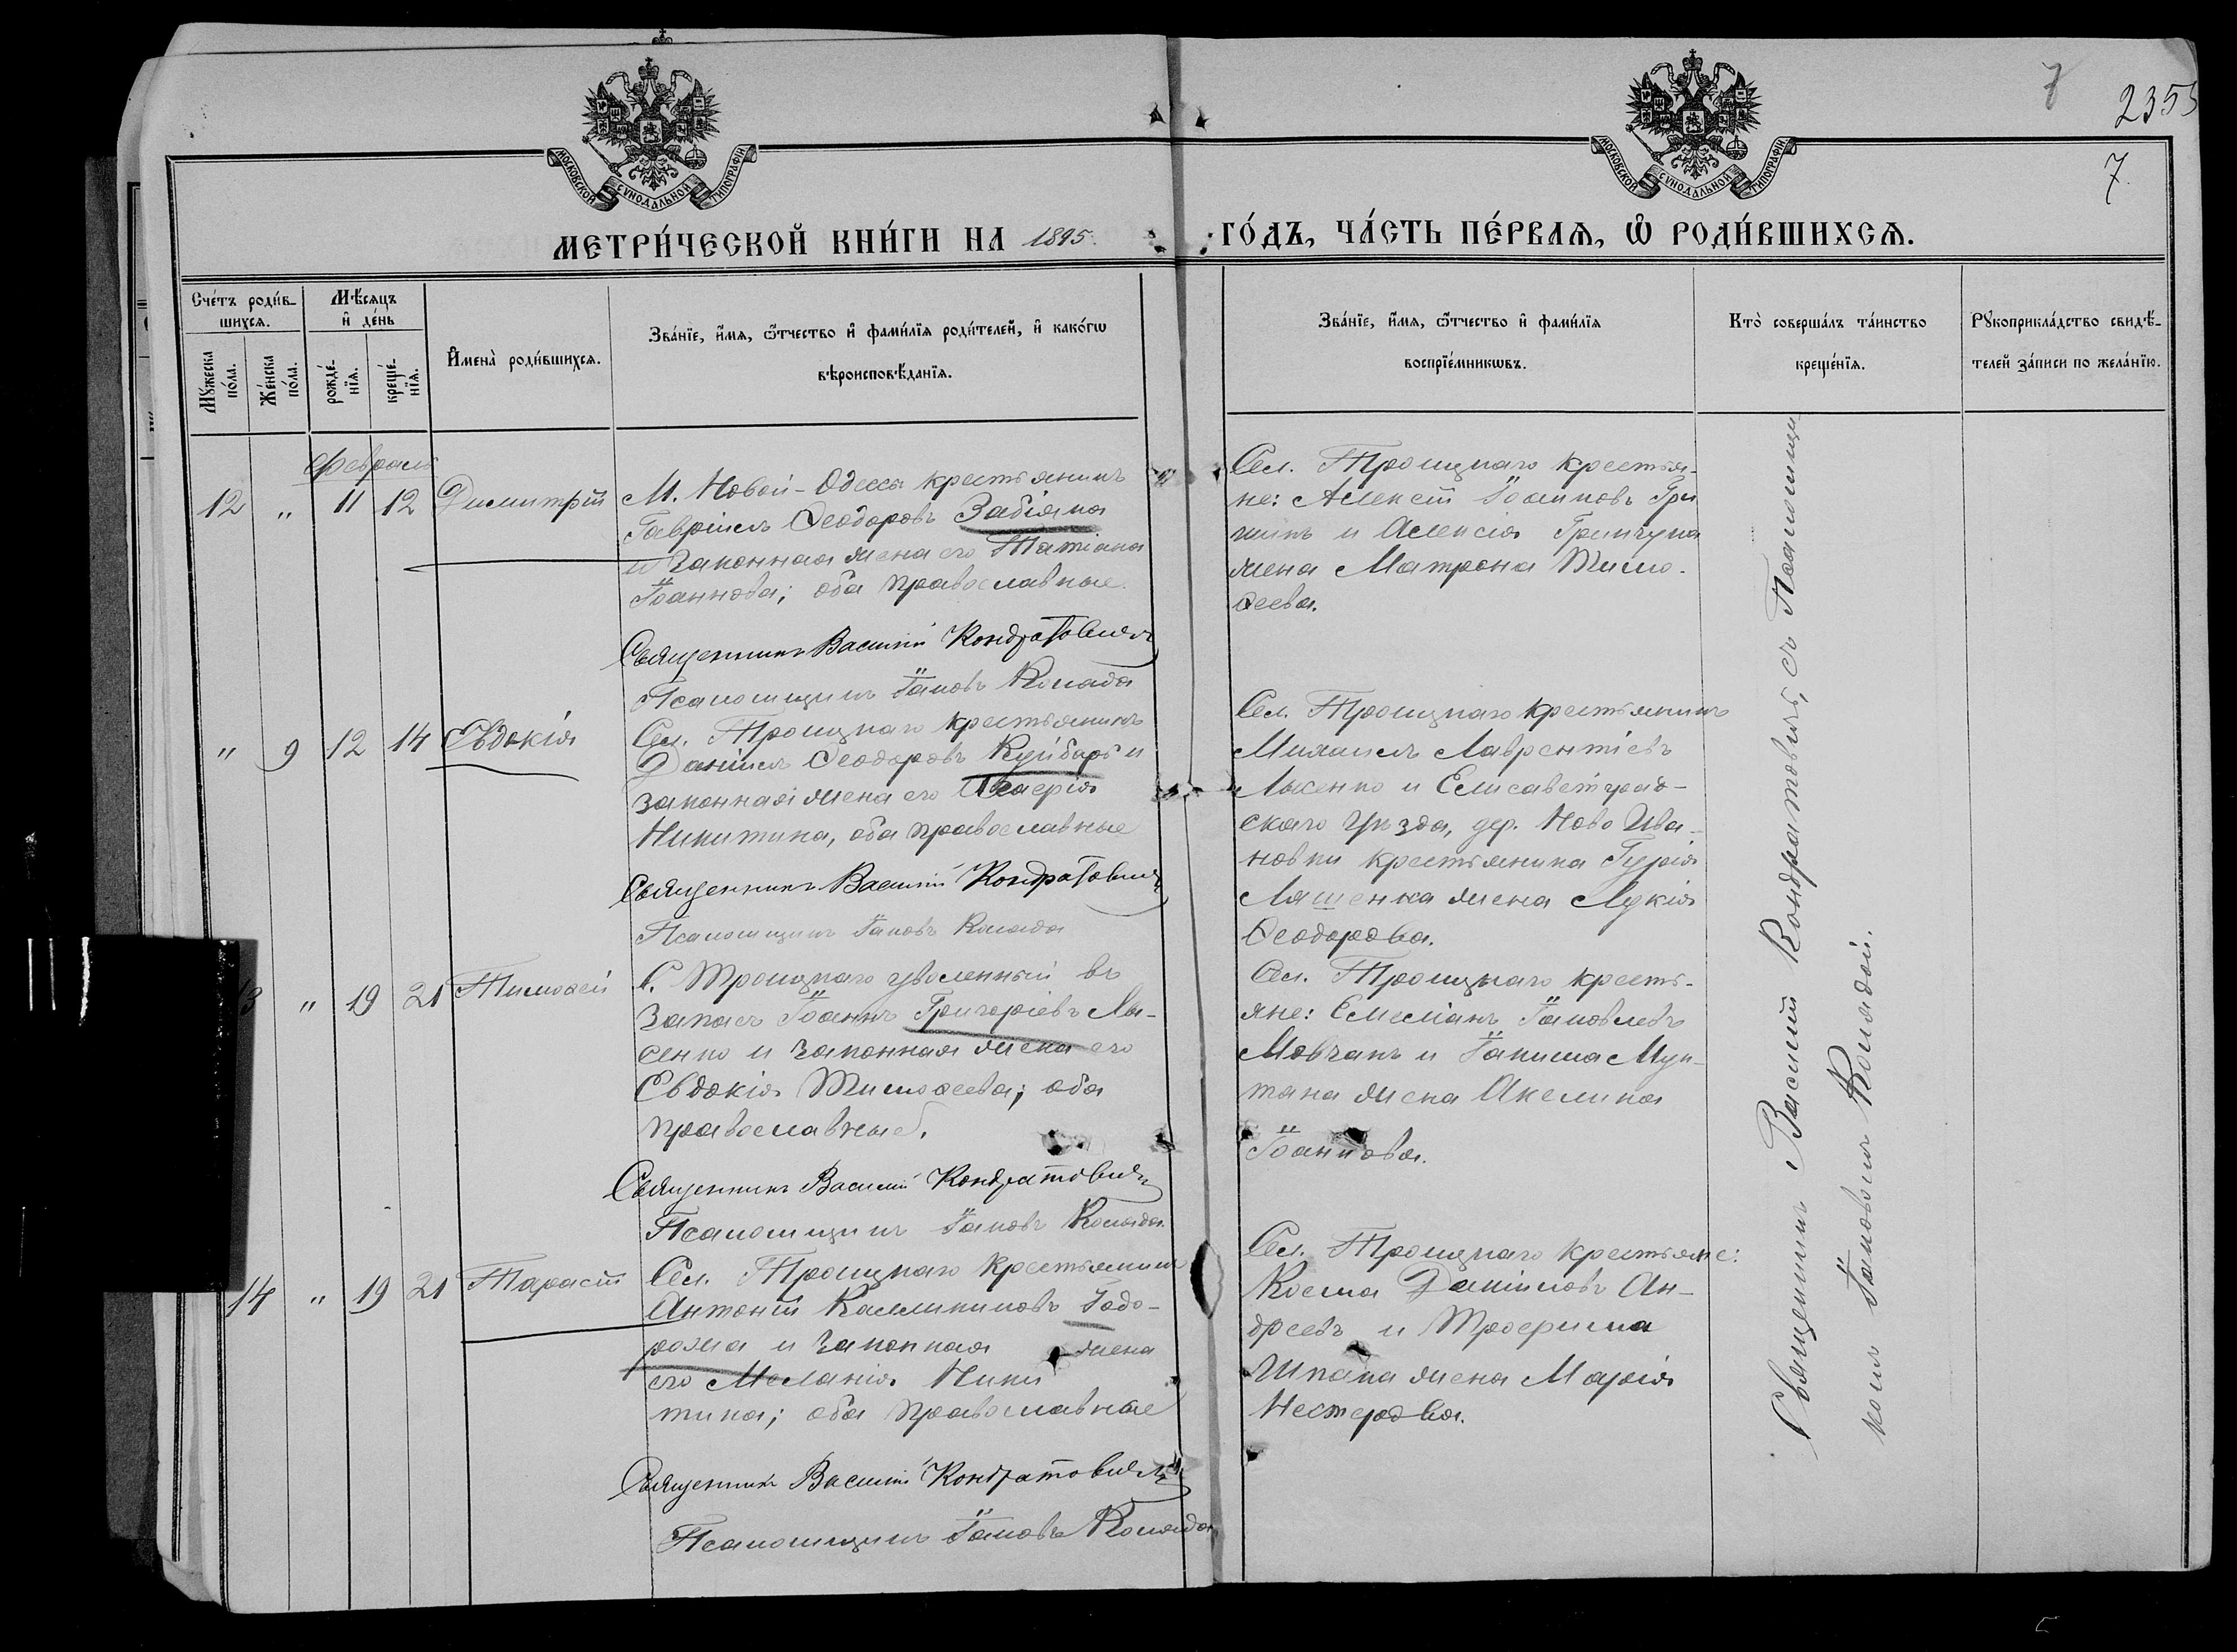 7
2355
7.
МОСКОВСКОЙ СѴНОДАЛЬНОЙ ТИПОГРАФІИ
МОСКОВСКОЙ СѴНОДАЛЬНОЙ ТИПОГРАФІИ
МЕТРИ́ЧЕСКОЙ КНИ́ГИ НА 1895 ГО́ДЪ, ЧА́СТЬ ПЕ́РВАѦ, Ѡ҆ РОДИ́ВШИХСѦ.
Сче́тъ роди́в-
шихсѧ.
Мꙋ́жеска по́ла.
Же́нска по́ла.
Мѣ́сѧцъ
и҆ де́нь
рожде́-
нїѧ.
креще́-
нїѧ.
И҆мена̀ роди́вшихсѧ.
Зва́нїе, и҆́мѧ, ѻ҆́тчество и҆ фами́лїѧ роди́телей, и҆ како́гѡ
вѣроисповѣ́данїѧ.
Зва́нїе, и҆́мѧ, ѻ҆́тчество и҆ фами́лїѧ
воспрїе́мникѡвъ.
Кто̀ соверша́лъ та́инство
креще́нїѧ.
Рꙋкоприкла́дство свидѣ́-
телей за́писи по жела́нїю.
Февраль
12 " 11 12 Димитрій
М. Новой-Одессы крестьянинъ
Гавріилъ Ѳеодоровъ Забіяка
и законная жена его Татіана
Іоаннова; оба православные
Священникъ Василій Кондратовичъ
Псаломщикъ Іаковъ Коляда
Сел. Троицкаго крестья-
не: Алексій Гри
шинъ и Алексія Гринчука
жена Матрона Тимо-
ѳеева.
" 9 12 14 Евдокія
Сел. Троицкаго крестьянинъ
Даніилъ Ѳеодоровъ Куйбарь и
законная жена его
Никитина, оба православные
Священникъ Василій Кондратовичъ
Псаломщикъ Іаковъ Коляда
Сел. Троицкаго крестьянинъ
Михаилъ Лаврентіевъ
Лысенко и Елисаветград-
скаго уѣзда, дер. Ново Ива-
новки крестьянина Гурія
Ляшенка жена Лукія
Ѳеодорова.
13 " 19 21 Тимоѳей
С. Троицкаго уволенный въ
запасъ Іоаннъ Григоріевъ Лы-
сенко и законная жена его
Евдокія Тимоѳеева; оба
православные.
Священникъ Василій Кондратовичъ
Псаломщикъ Іаковъ Коляда
Сел. Троицкаго кресть-
яне: Емеліанъ Іаковлевъ
Мовчанъ и Іакима Мун-
тана жена Акелина
Іоаннова.
14 " 19 21 Тарасій
Сел. Троицкаго крестьянинъ
Антоній Каллиниковъ
и законная жена
его Меланія Ники
тина; оба православные
Священникъ Василій Кондратовичъ
Псаломщикъ Іаковъ Коляда
Сел. Троицкаго крестьяне:
Косма Даніиловъ Ан-
дреевъ и Трофима
Шпака жена Марія
Нестерова.
Священникъ Василій Кондратовичъ, съ Псаломщи
комъ Іаковомъ Колядой.